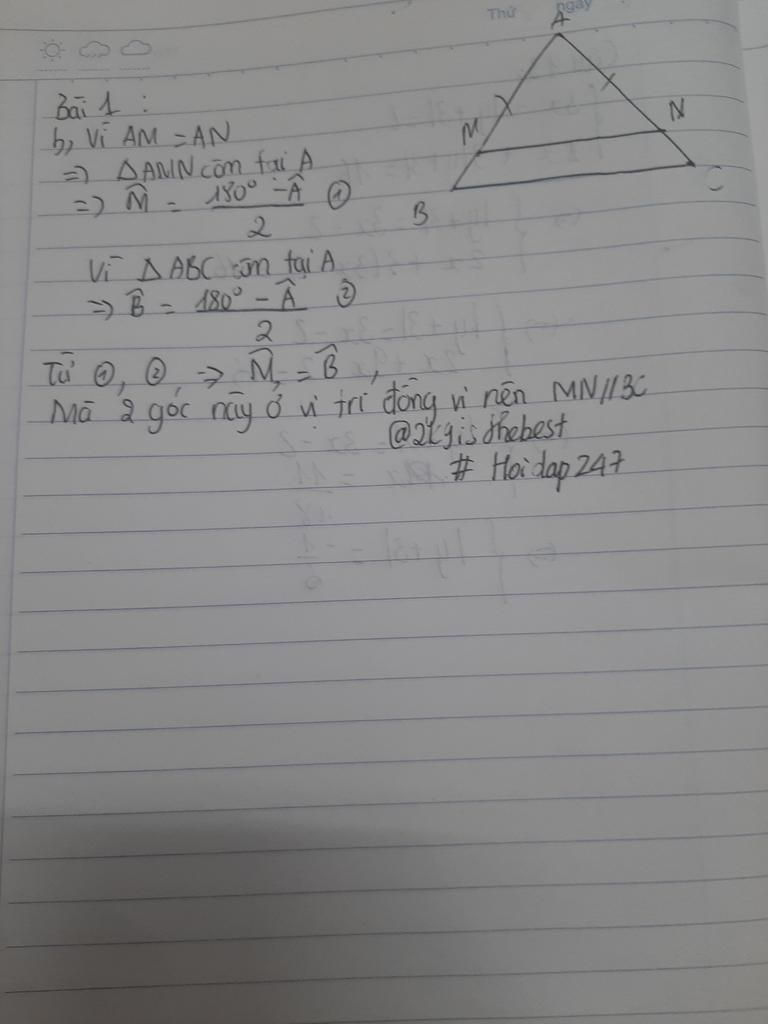 Thứ ngày
Bài 1 :
b, Vì AM = AN
=> ΔAMN cân tại A
=> M̂ = 180° - Â / 2 ①
Vì ΔABC cân tại A
=> B̂ = 180° - Â / 2 ②
Từ ①, ② => M̂, = B̂,
Mà 2 góc này ở vị trí đồng vị nên MN//BC
@2kgisthebest
# Hoidap247
A
M
N
B
C